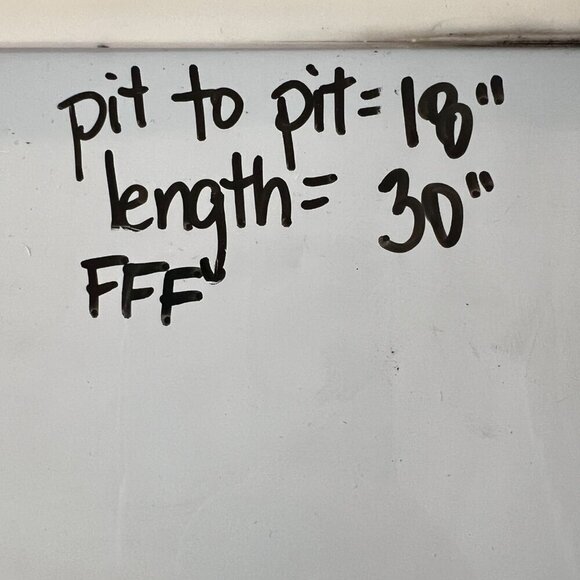 pit to pit = 18"
length = 30"
FFF